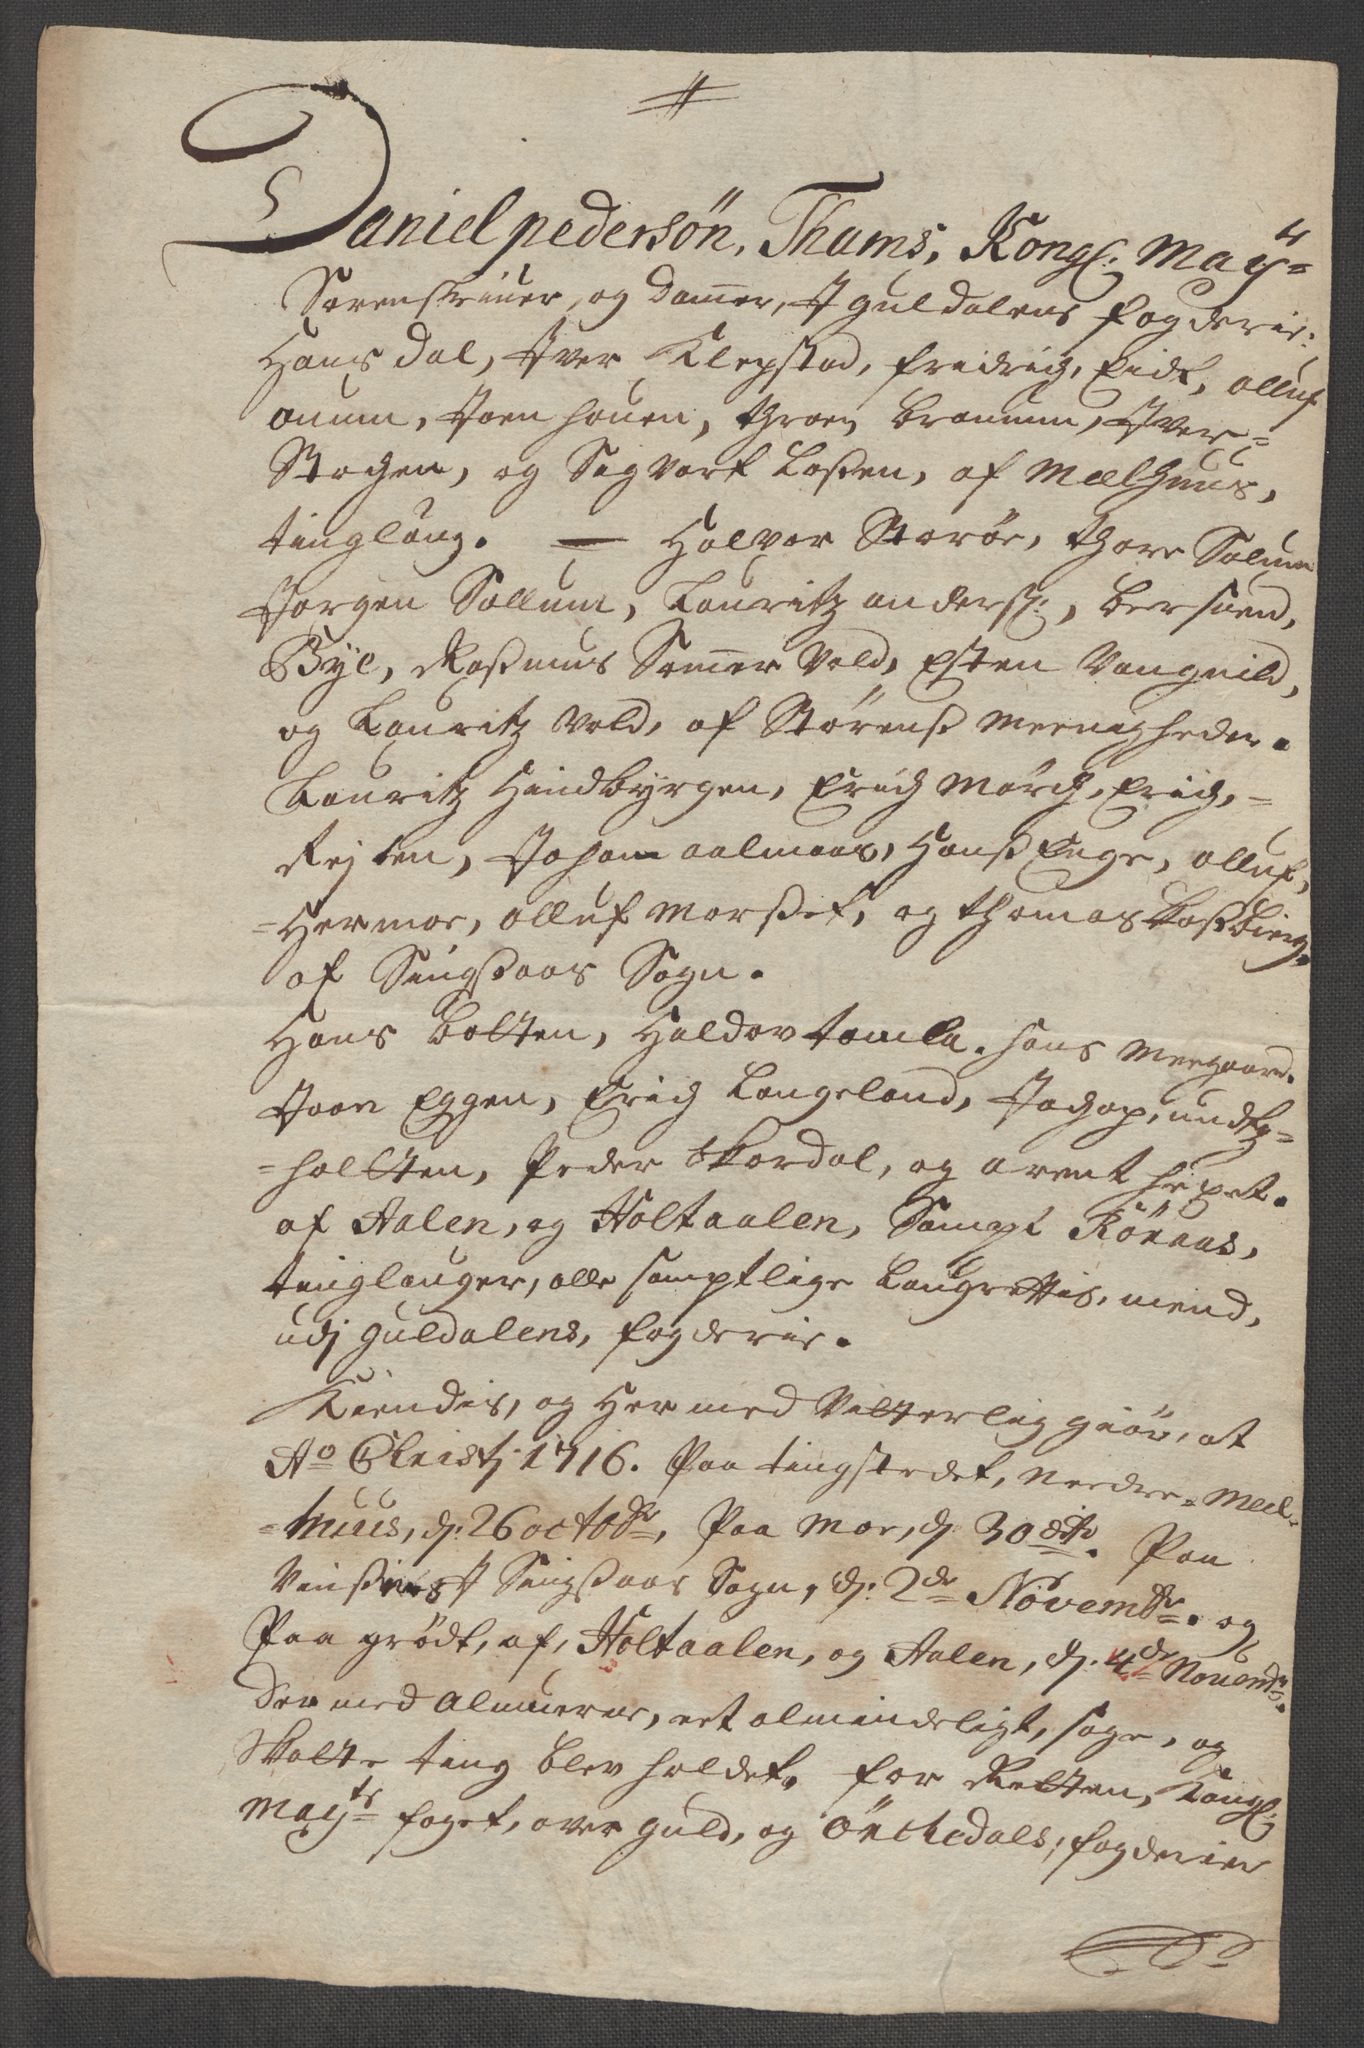 Daniel pedersøn, Thams, Kongl: Maÿ=
Sorenskriuer, og Dommer, J guldalens fogderie:
Hans dal, Jver Klepstad, fridrich, Eidt, olluf
onum, Joen houen, throen branum, Jver=
Stochen, og Sigvort Loßen, af Meelhuus,
tinglaug. — Halvor Storøe, thore Solum
Jørgen Sollum, Lauritz anderss:, bersuend,
Bÿe, Raßmus Sommer Vold, Esten Vongnild,
og Lauritz Vold, af Størenß meenigheder.
Lauritz Hindbÿrgen, Erich Mørch, Erich,=
Reiten, Johan aalmaas, Hanß Enge, olluf,
=Hermoe, olluf Morßet, og thomas Boßbierg.
af Singßaas Sogn.
Hans bolten, Haldov tamla. hans Meegaard.
Joen Eggen, Erich Langeland, Jachop, undtz=
=hollten, Peder Skordal, og arent
af Aalen, og Holtaalen, Sampt Röraas,
tinglauger, alle samptlige Laugrettis, mend,
udj guldalens, fogderie.
Kiendis, og Her med Vitterlig giør, at
Ao Christj 1716. Paa tingstedet, neder= Meel=
=huus, d: 26 octobr, Paa Moe, d: 30 dito. Paa
J Singßaas Sogn, d: 2de Novembr. og
Paa grødt, af, Holtaalen, og Aalen, d: 4de Novembr.
der med Almuerne, eet almindeligt, sage, og
Skatte ting blev holdet. for Retten, Kongl:
Mayts foget, over guld, og Örchedals, fogderier